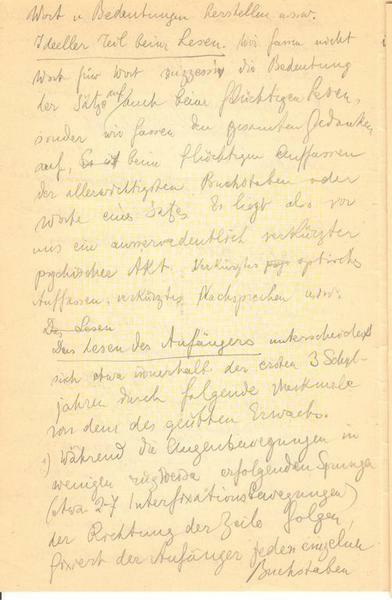 Wort u Bedeutungen herstellen usw.
Ideeller Teil beim Lesen. Wir fassen nicht
Wort für Wort die Bedeutung
der Sätze auf, auch beim flüchtigen Lesen,
sondern wir fassen den gesamten Gedanken
auf, beim flüchtigen Auffassen
der allerwichtigsten Buchstaben oder
Worte eines Satzes. Es liegt also vor
uns ein ausserordentlich verkürzter
psychischer Akt. Verkürztes optisches
Auffassen, verkürztes Nachsprechen usw.
Das Lesen
Das Lesen des Anfängers unterscheidet
sich etwa innerhalb der ersten 3 Schul-
jahren durch folgende Merkmale
von dem des geübten Erwachs.
1) Während die Augenbewegungen in
wenigen erfolgenden Sprüngen
(etwa 2-7 Interfixationsbewegungen)
der Richtung der Zeile folgen,
fixiert der Anfänger jeden einzelnen
Buchstaben